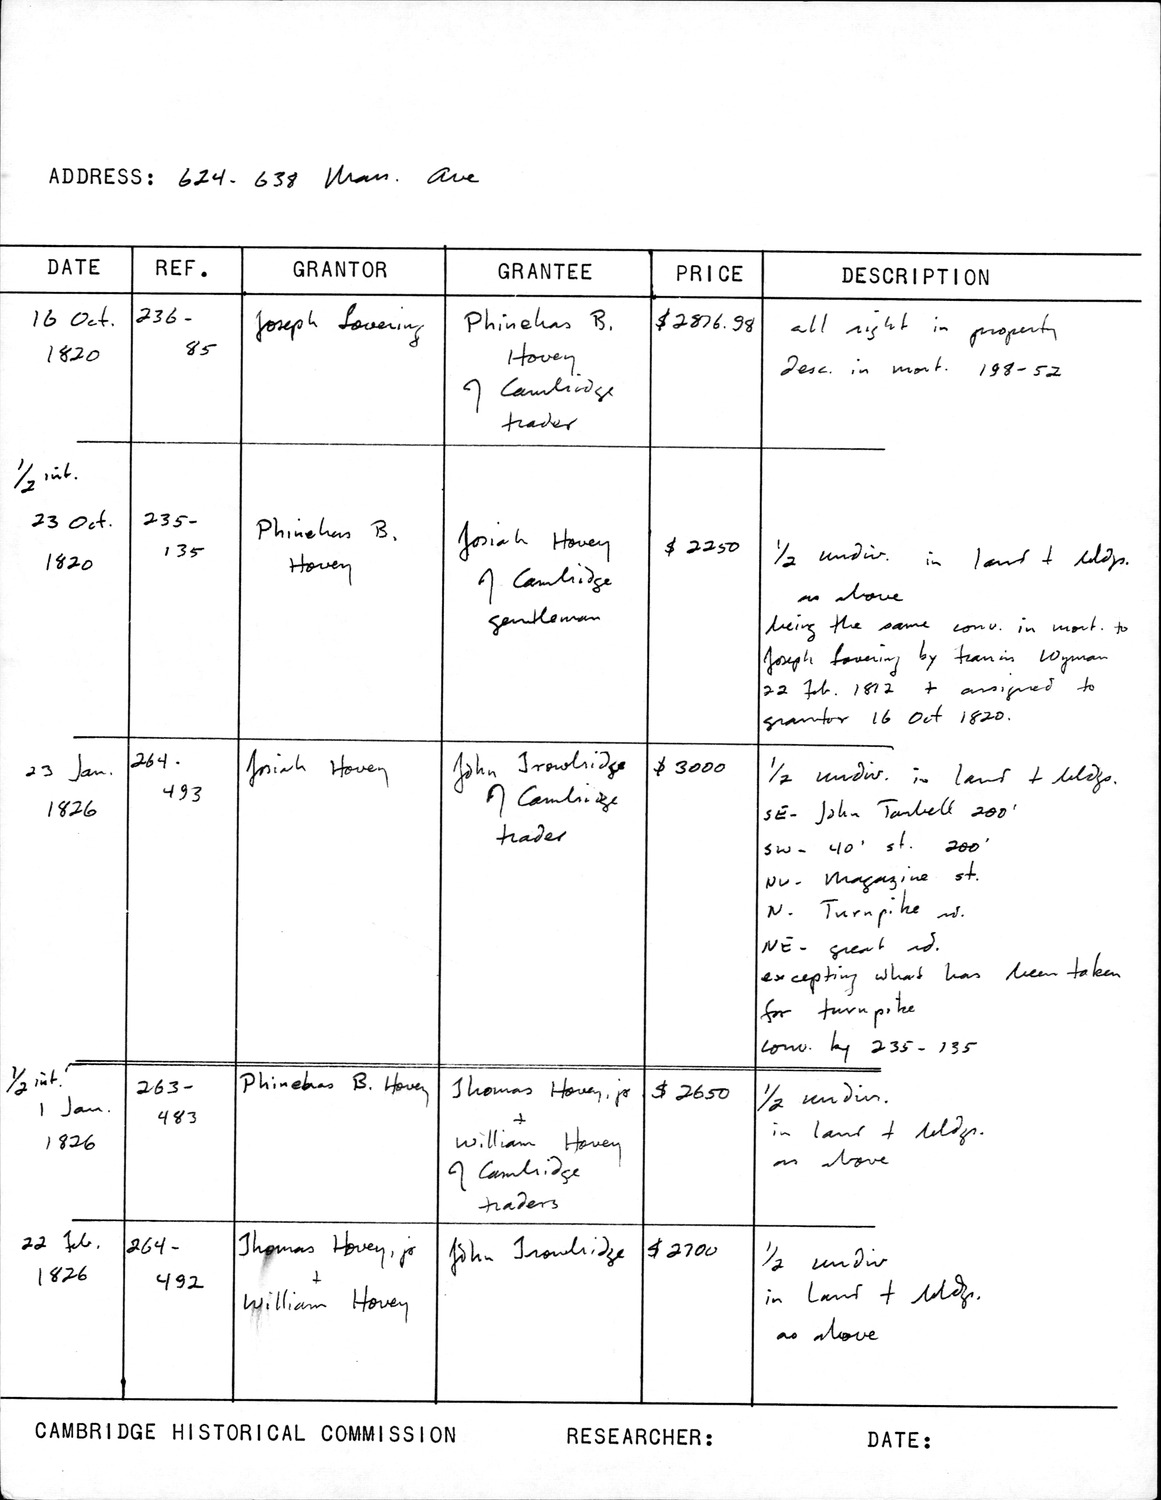 ADDRESS: 624-638 Mass. Ave
DATE REF. GRANTOR GRANTEE PRICE DESCRIPTION
16 Oct.
1820
236-
85
Joseph Lovering
Phinehas B.
Hovey
of Cambridge
trader
$2876.98
all right in property
desc. in mort. 198-52
1/2 int.
23 Oct.
1820
235-
135
Phinehas B.
Hovey
Josiah Hovey
of Cambridge
gentleman
$2250
1/2 undiv. in land + bldgs.
as above
being the same conv. in mort. to
Joseph Lovering by Francis Wyman
22 Feb. 1812 + assigned to
grantor 16 Oct 1820.
23 Jan.
1826
264-
493
Josiah Hovey
John Trowbridge
of Cambridge
trader
$3000
1/2 undiv. in land + bldgs.
SE- John Tarbell 200'
SW- 40' st. 200'
NW- Magazine st.
N- Turnpike rd.
NE- great rd.
excepting what has been taken
for turnpike
conv. by 235-135
1/2 int.
1 Jan.
1826
263-
483
Phinehas B. Hovey
Thomas Hovey, jr
+
William Hovey
of Cambridge
traders
$2650
1/2 undiv.
in land + bldgs.
as above
22 Feb.
1826
264-
492
Thomas Hovey, jr
+
William Hovey
John Trowbridge
$2700
1/2 undiv
in land + bldgs.
as above
CAMBRIDGE HISTORICAL COMMISSION RESEARCHER: DATE: